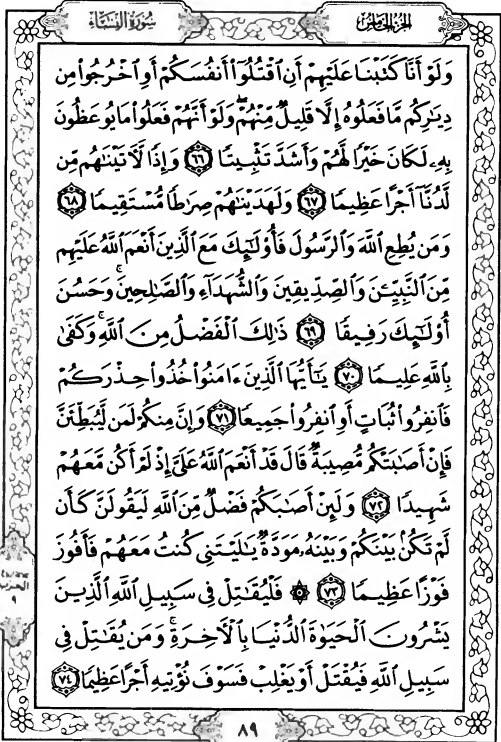 سُورَةُ النِّسَاءِ
الجزء الخامس
وَلَوْ أَنَّا كَتَبْنَا عَلَيْهِمْ أَنِ ٱقْتُلُوٓا۟ أَنفُسَكُمْ أَوِ ٱخْرُجُوا۟ مِن
دِيَٰرِكُم مَّا فَعَلُوهُ إِلَّا قَلِيلٌ مِّنْهُمْ ۖ وَلَوْ أَنَّهُمْ فَعَلُوا۟ مَا يُوعَظُونَ
بِهِۦ لَكَانَ خَيْرًا لَّهُمْ وَأَشَدَّ تَثْبِيتًا ٦٦ وَإِذًا لَّءَاتَيْنَٰهُم مِّن
لَّدُنَّآ أَجْرًا عَظِيمًا ٦٧ وَلَهَدَيْنَٰهُمْ صِرَٰطًا مُّسْتَقِيمًا ٦٨
وَمَن يُطِعِ ٱللَّهَ وَٱلرَّسُولَ فَأُو۟لَٰٓئِكَ مَعَ ٱلَّذِينَ أَنْعَمَ ٱللَّهُ عَلَيْهِم
مِّنَ ٱلنَّبِيِّـۧنَ وَٱلصِّدِّيقِينَ وَٱلشُّهَدَآءِ وَٱلصَّٰلِحِينَ ۚ وَحَسُنَ
أُو۟لَٰٓئِكَ رَفِيقًا ٦٩ ذَٰلِكَ ٱلْفَضْلُ مِنَ ٱللَّهِ ۚ وَكَفَىٰ
بِٱللَّهِ عَلِيمًا ٧٠ يَٰٓأَيُّهَا ٱلَّذِينَ ءَامَنُوا۟ خُذُوا۟ حِذْرَكُمْ
فَٱنفِرُوا۟ ثُبَاتٍ أَوِ ٱنفِرُوا۟ جَمِيعًا ٧١ وَإِنَّ مِنكُمْ لَمَن لَّيُبَطِّئَنَّ
فَإِنْ أَصَٰبَتْكُم مُّصِيبَةٌ قَالَ قَدْ أَنْعَمَ ٱللَّهُ عَلَىَّ إِذْ لَمْ أَكُن مَّعَهُمْ
شَهِيدًا ٧٢ وَلَئِنْ أَصَٰبَكُمْ فَضْلٌ مِّنَ ٱللَّهِ لَيَقُولَنَّ كَأَن
لَّمْ تَكُنۢ بَيْنَكُمْ وَبَيْنَهُۥ مَوَدَّةٌ يَٰلَيْتَنِى كُنتُ مَعَهُمْ فَأَفُوزَ
فَوْزًا عَظِيمًا ٧٣ ۞ فَلْيُقَٰتِلْ فِى سَبِيلِ ٱللَّهِ ٱلَّذِينَ
يَشْرُونَ ٱلْحَيَوٰةَ ٱلدُّنْيَا بِٱلْءَاخِرَةِ ۚ وَمَن يُقَٰتِلْ فِى
سَبِيلِ ٱللَّهِ فَيُقْتَلْ أَوْ يَغْلِبْ فَسَوْفَ نُؤْتِيهِ أَجْرًا عَظِيمًا ٧٤
الحزب
٩
٨٩